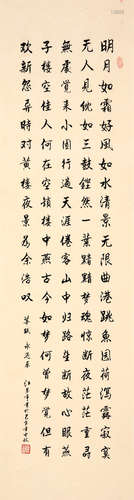 明月如霜好風如水清景无限曲港跳魚圓荷瀉露寂寞
无人見紞如三鼓鏗然一葉黯黯夢雲驚斷夜茫茫重尋
無處覺來小園行遍天涯倦客山中归路望斷故園心眼燕
子樓空佳人何在空鎖樓中燕古今如夢何曾夢覺但有旧
欢新怨異時對黄樓夜景為余浩叹
苏轼 永遇乐